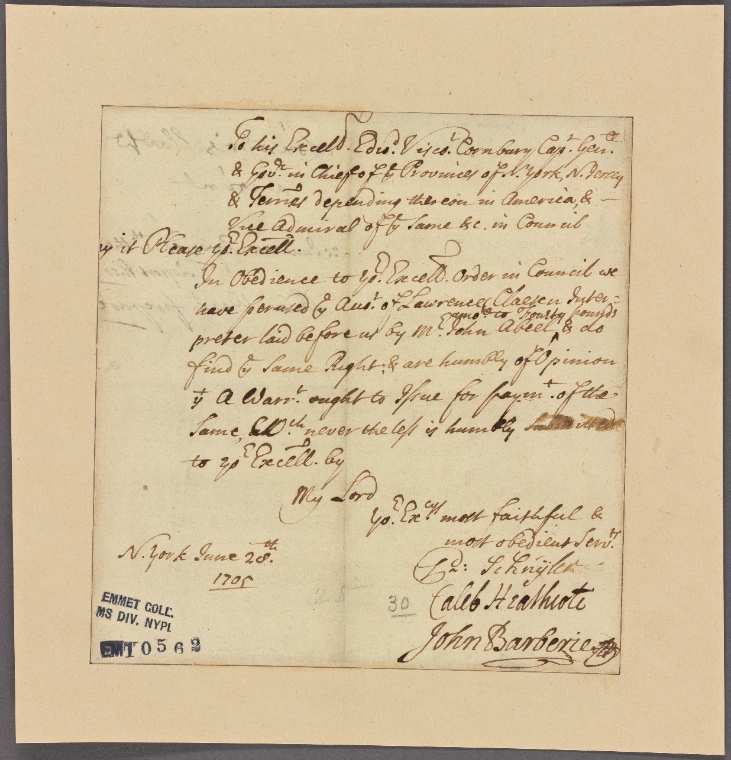 To his Excell.^y Edw.^d Visco.^t Cornbury Cap.^t Gen.^ll
& Gov.^r in Chief of y.^e Provinces of N. York, N. Jersey
& Terr.^ies depending thereon in America, & —
Vice Admiral of y.^e Same &c. in Council
ay it Please yo.^r Excell.
In Obedience to yo.^r Excell.^s Order in Council we
have perused y.^e Acc.^t of Lawrence Claesen Inter=
amo.^g to Twenty pounds
preter laid before us by M.^r John Abeel, & do
find y.^e Same Right; & are humbly of Opinion
y.^t A Warr.^t ought to Issue for paym.^t of the
Same, W.^ch never the less is humbly Submitted
to yo.^r Excell. by
My Lord
yo.^r Ex.^cys most faithfull &
most obedient Serv.^ts
N. York June 28.^th
1705
P.^r: Schuyler
Caleb Heathcote
John Barberie
30
EMMET COLL.
MS DIV. NYPL
EMT 0562